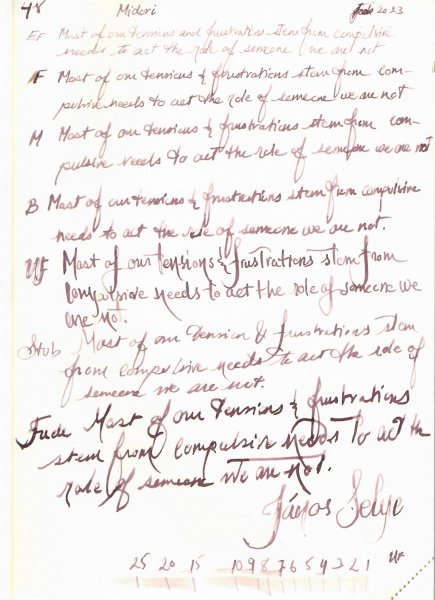 48 Midori Feb 2023
EF Most of our tensions and frustrations stem from compulsive
needs to act the role of someone we are not
F Most of our tensions & frustrations stem from com-
pulsive needs to act the role of someone we are not
M Most of our tensions & frustrations stem from com-
pulsive needs to act the role of someone we are not
B Most of our tensions & frustrations stem from compulsive
needs to act the role of someone we are not.
UF Most of our tensions & frustrations stem from
compulsive needs to act the role of someone we
are not.
Stub Most of our Tension & frustrations stem
from compulsive needs to act the role of
someone we are not.
Fude Most of our tensions & frustrations
stem from compulsive needs to act the
role of someone we are not.
János Selye
25 20 15 10 9 8 7 6 5 4 3 2 1 UF